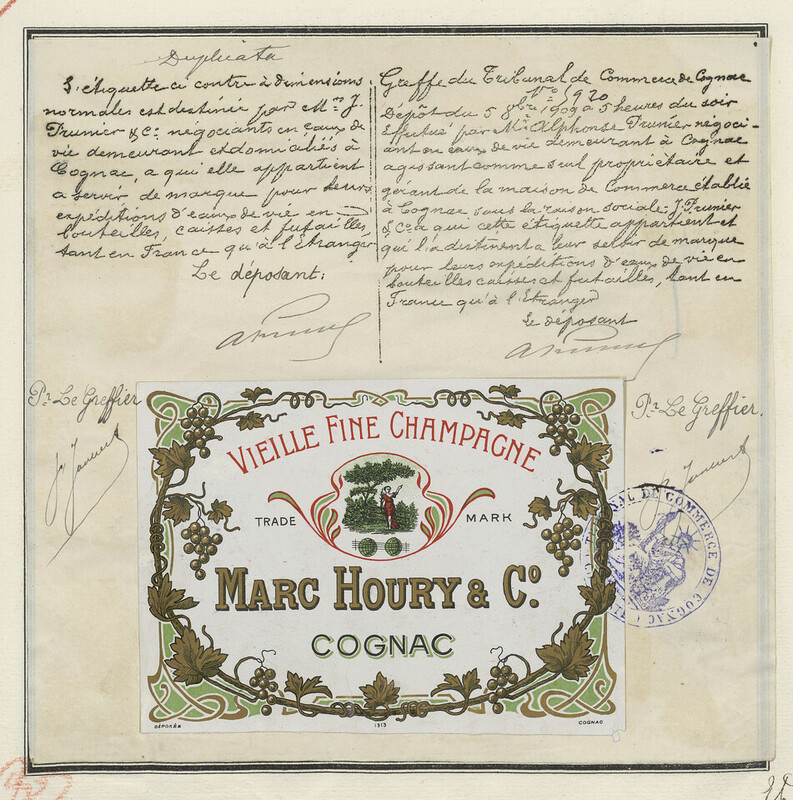 Duplicata
L'étiquette ci contre à dimensions
normales est destinée par Mrs J.
Prunier & Cie négociants en eaux de
vie demeurant et domiciliés à
Cognac, a qui elle appartient
a servir de marque pour leurs
expéditions d'eaux de vie en
bouteilles, caisses et futailles,
tant en France qu'à l'Etranger
Le déposant:
Greffe du Tribunal de Commerce de Cognac
No 1920
Dépôt du 5 8bre 1909 à 5 heures du soir
Effectué par Mr Alphonse Prunier négoci-
ant en eaux de vie demeurant à Cognac
agissant comme seul propriétaire et
gérant de la maison de Commerce établie
à Cognac sous la raison sociale: J. Prunier
& Cie a qui cette étiquette appartient et
qui l'a destinent a leur servir de marque
pour leurs expéditions d'eaux de vie en
bouteilles caisses et futailles, tant en
France qu'à l'Etranger
Le déposant
Pr Le Greffier
Pr Le Greffier.
VIEILLE FINE CHAMPAGNE
TRADE MARK
MARC HOURY & Co.
COGNAC
DÉPOSÉE 1913 COGNAC
TRIBUNAL DE COMMERCE DE COGNAC